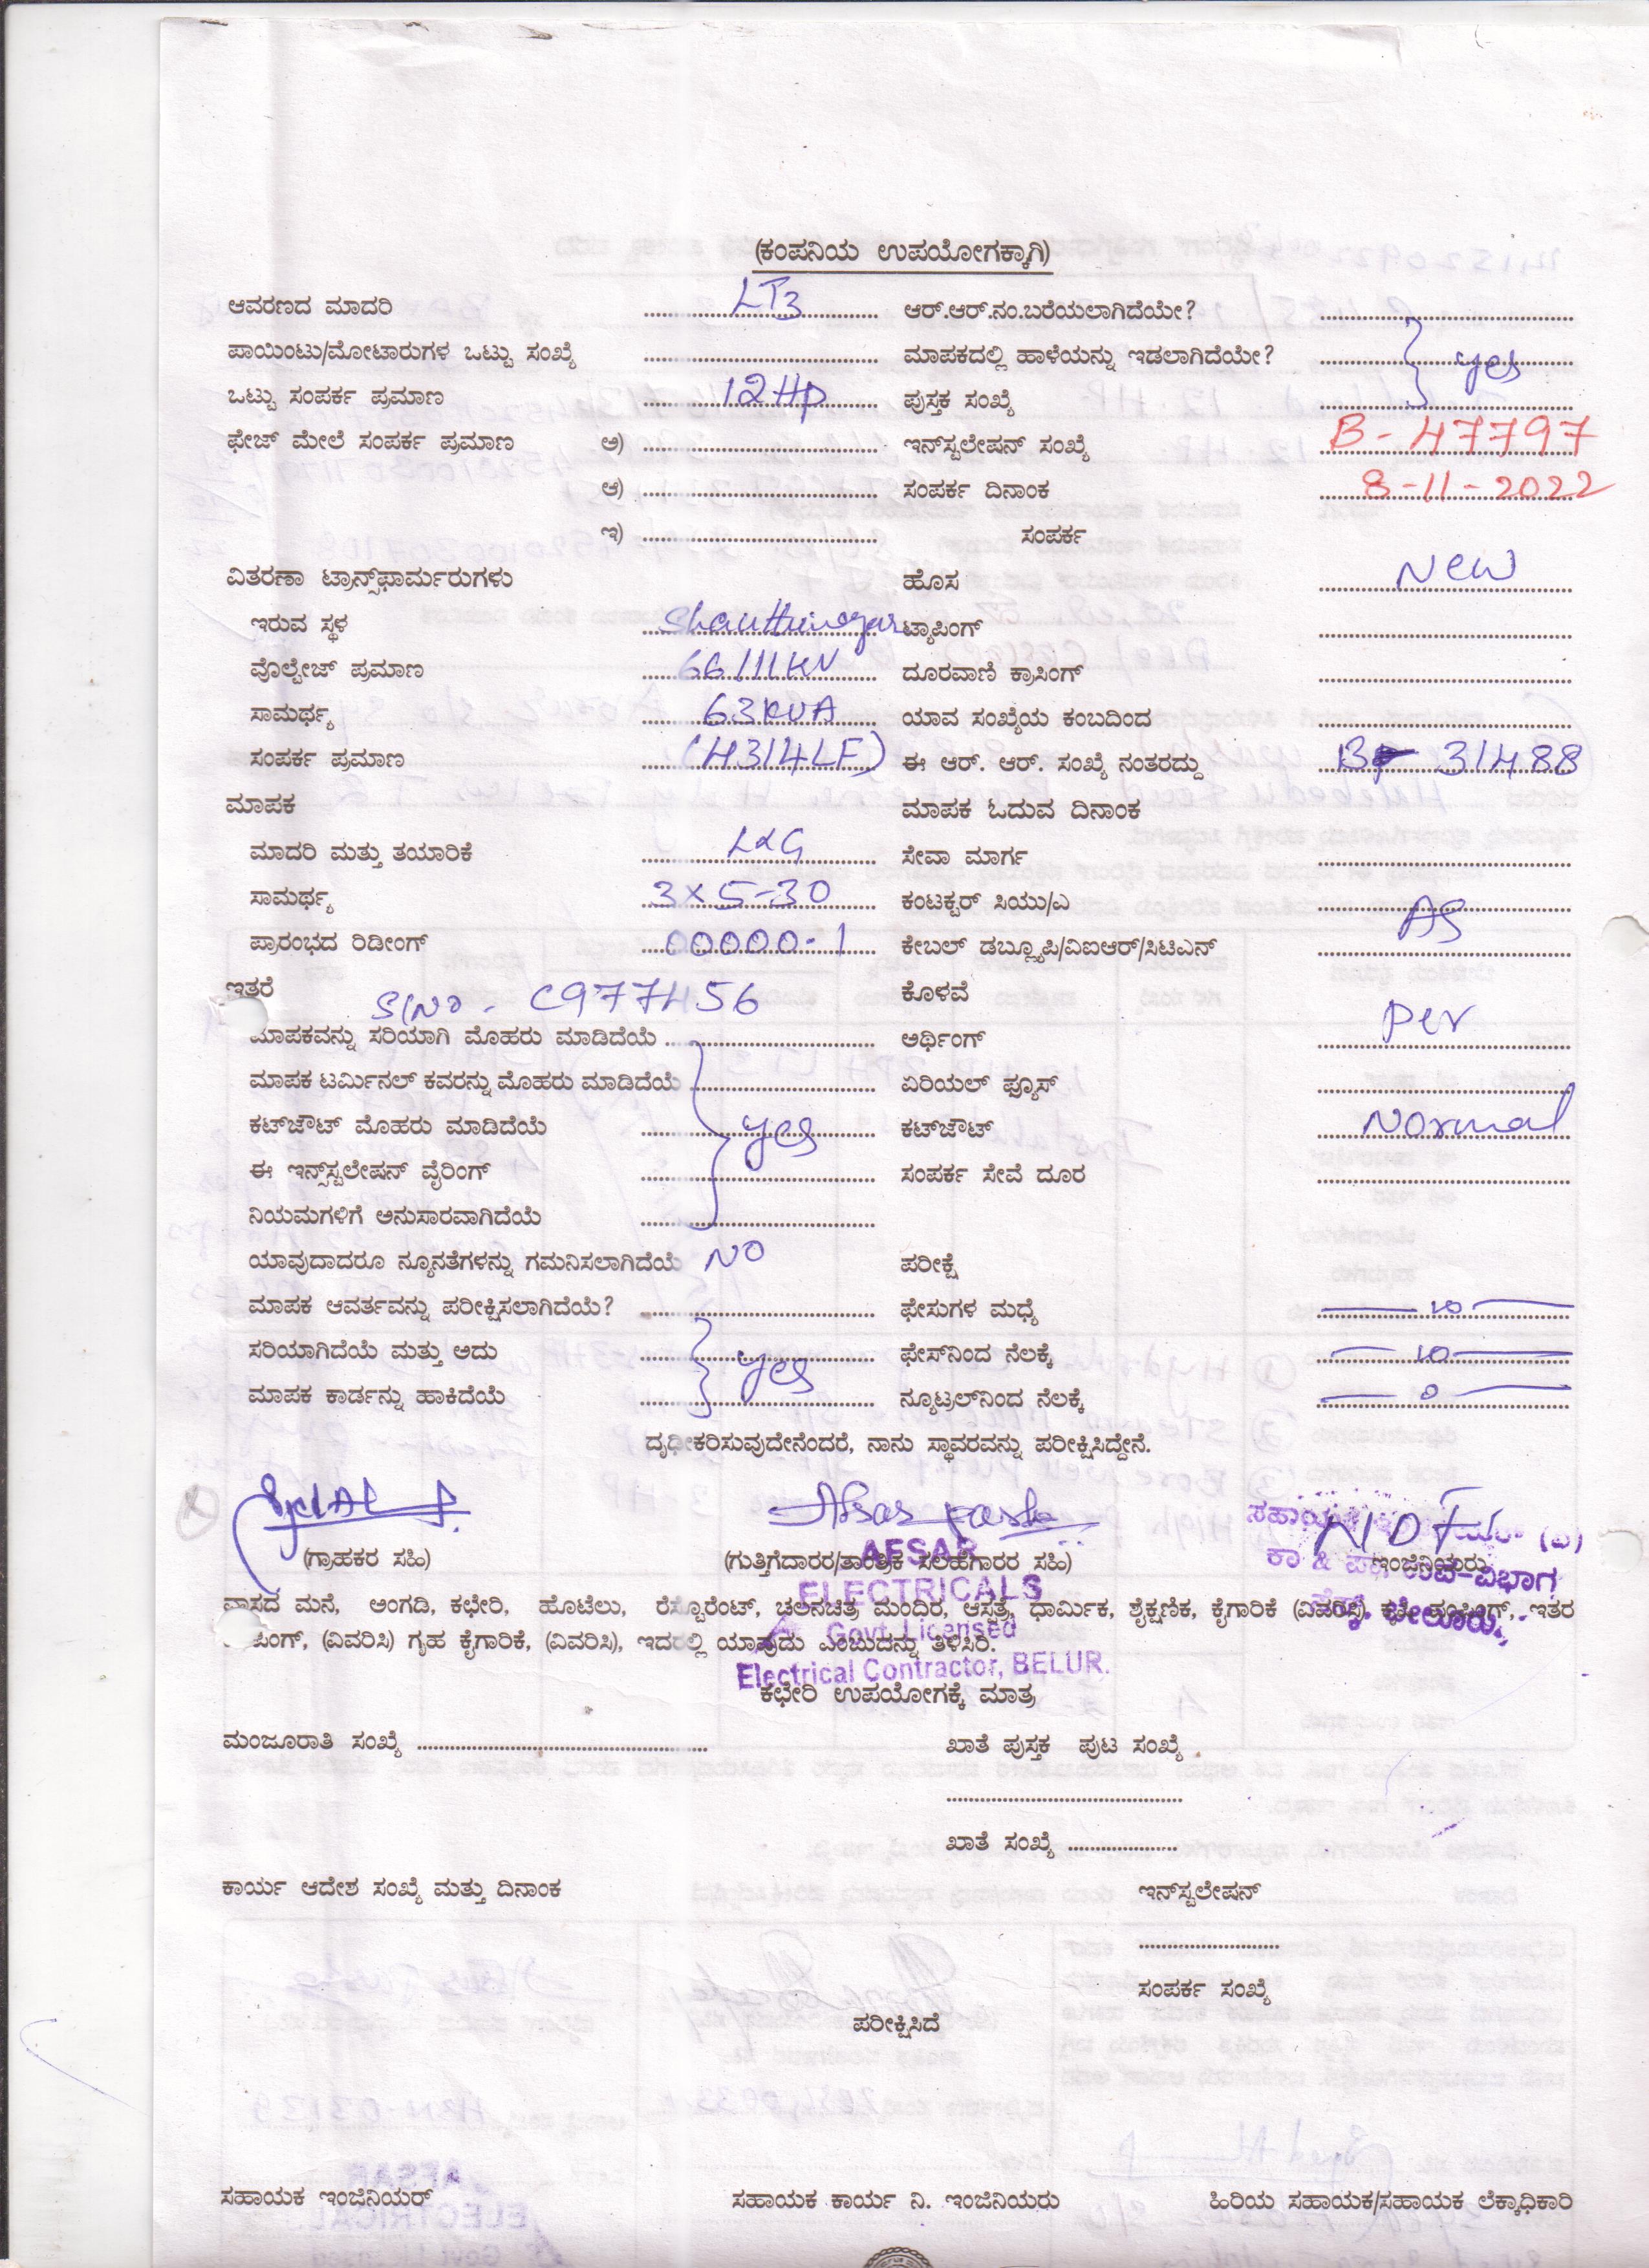 (ಕಂಪನಿಯ ಉಪಯೋಗಕ್ಕಾಗಿ)
ಆವರಣದ ಮಾದರಿ LT3 ಆರ್.ಆರ್.ನಂ.ಬರೆಯಲಾಗಿದೆಯೇ?
ಪಾಯಿಂಟು/ಮೋಟಾರುಗಳ ಒಟ್ಟು ಸಂಖ್ಯೆ ಮಾಪಕದಲ್ಲಿ ಹಾಳೆಯನ್ನು ಇಡಲಾಗಿದೆಯೇ? yes
ಒಟ್ಟು ಸಂಪರ್ಕ ಪ್ರಮಾಣ 12Hp ಪುಸ್ತಕ ಸಂಖ್ಯೆ
ಫೇಜ್ ಮೇಲೆ ಸಂಪರ್ಕ ಪ್ರಮಾಣ ಅ) ಇನ್‌ಸ್ಟಲೇಷನ್ ಸಂಖ್ಯೆ B-47797
ಆ) ಸಂಪರ್ಕ ದಿನಾಂಕ 8-11-2022
ಇ) ಸಂಪರ್ಕ
ವಿತರಣಾ ಟ್ರಾನ್ಸ್‌ಫಾರ್ಮರುಗಳು ಹೊಸ New
ಇರುವ ಸ್ಥಳ Shanthinagar ಟ್ಯಾಪಿಂಗ್
ವೊಲ್ಟೇಜ್ ಪ್ರಮಾಣ 66/11KV ದೂರವಾಣಿ ಕ್ರಾಸಿಂಗ್
ಸಾಮರ್ಥ್ಯ 63KVA ಯಾವ ಸಂಖ್ಯೆಯ ಕಂಬದಿಂದ
ಸಂಪರ್ಕ ಪ್ರಮಾಣ (4314LF) ಈ ಆರ್. ಆರ್. ಸಂಖ್ಯೆ ನಂತರದ್ದು B- 31488
ಮಾಪಕ ಮಾಪಕ ಓದುವ ದಿನಾಂಕ
ಮಾದರಿ ಮತ್ತು ತಯಾರಿಕೆ L&G ಸೇವಾ ಮಾರ್ಗ
ಸಾಮರ್ಥ್ಯ 3x5-30 ಕಂಟಕ್ಟರ್ ಸಿಯು/ಎ As
ಪ್ರಾರಂಭದ ರಿಡೀಂಗ್ 00000-1 ಕೇಬಲ್ ಡಬ್ಲ್ಯೂಪಿ/ವಿಐಆರ್/ಸಿಟಿಎನ್
ಇತರೆ S/No - C977456 ಕೊಳವೆ
ಮಾಪಕವನ್ನು ಸರಿಯಾಗಿ ಮೊಹರು ಮಾಡಿದೆಯೆ ಅರ್ಥಿಂಗ್ per
ಮಾಪಕ ಟರ್ಮಿನಲ್ ಕವರನ್ನು ಮೊಹರು ಮಾಡಿದೆಯೆ ಏರಿಯಲ್ ಫ್ಯೂಸ್
ಕಟ್‌ಔಟ್ ಮೊಹರು ಮಾಡಿದೆಯೆ yes ಕಟ್‌ಔಟ್ Normal
ಈ ಇನ್ಸ್‌ಸ್ಟಲೇಷನ್ ವೈರಿಂಗ್ ಸಂಪರ್ಕ ಸೇವೆ ದೂರ
ನಿಯಮಗಳಿಗೆ ಅನುಸಾರವಾಗಿದೆಯೆ
ಯಾವುದಾದರೂ ನ್ಯೂನತೆಗಳನ್ನು ಗಮನಿಸಲಾಗಿದೆಯೆ NO ಪರೀಕ್ಷೆ
ಮಾಪಕ ಆವರ್ತವನ್ನು ಪರೀಕ್ಷಿಸಲಾಗಿದೆಯೆ? ಫೇಸುಗಳ ಮಧ್ಯೆ 10
ಸರಿಯಾಗಿದೆಯೆ ಮತ್ತು ಅದು yes ಫೇಸ್‌ನಿಂದ ನೆಲಕ್ಕೆ 10
ಮಾಪಕ ಕಾರ್ಡನ್ನು ಹಾಕಿದೆಯೆ ನ್ಯೂಟ್ರಲ್‌ನಿಂದ ನೆಲಕ್ಕೆ 0
ದೃಢೀಕರಿಸುವುದೇನೆಂದರೆ, ನಾನು ಸ್ಥಾವರವನ್ನು ಪರೀಕ್ಷಿಸಿದ್ದೇನೆ.
Afsar pasha
(ಗ್ರಾಹಕರ ಸಹಿ) (ಗುತ್ತಿಗೆದಾರರ/ತಾಂತ್ರಿಕ ಸಲಹೆಗಾರರ ಸಹಿ) ಇಂಜಿನಿಯರು
AFSAR
ELECTRICALS
Govt. Licensed
Electrical Contractor, BELUR.
ಕಾ & ಪಾ ಉಪ-ವಿಭಾಗ
ಬೇಲೂರು.
ವಾಸದ ಮನೆ, ಅಂಗಡಿ, ಕಛೇರಿ, ಹೊಟೆಲು, ರೆಸ್ಟೊರೆಂಟ್, ಚಲನಚಿತ್ರ ಮಂದಿರ, ಆಸ್ಪತ್ರೆ, ಧಾರ್ಮಿಕ, ಶೈಕ್ಷಣಿಕ, ಕೈಗಾರಿಕೆ (ವಿವರಿಸಿ) ಕೃಷಿ ಪಂಪಿಂಗ್, ಇತರ
(ವಿವರಿಸಿ) ಗೃಹ ಕೈಗಾರಿಕೆ, (ವಿವರಿಸಿ), ಇದರಲ್ಲಿ ಯಾವುದು ಎಂಬುದನ್ನು ತಿಳಿಸಿರಿ.
ಕಛೇರಿ ಉಪಯೋಗಕ್ಕೆ ಮಾತ್ರ
ಮಂಜೂರಾತಿ ಸಂಖ್ಯೆ ಖಾತೆ ಪುಸ್ತಕ ಪುಟ ಸಂಖ್ಯೆ
ಖಾತೆ ಸಂಖ್ಯೆ
ಕಾರ್ಯ ಆದೇಶ ಸಂಖ್ಯೆ ಮತ್ತು ದಿನಾಂಕ ಇನ್‌ಸ್ಟಲೇಷನ್
ಸಂಪರ್ಕ ಸಂಖ್ಯೆ
ಪರೀಕ್ಷಿಸಿದೆ
ಸಹಾಯಕ ಇಂಜಿನಿಯರ್ ಸಹಾಯಕ ಕಾರ್ಯ ನಿ. ಇಂಜಿನಿಯರು ಹಿರಿಯ ಸಹಾಯಕ/ಸಹಾಯಕ ಲೆಕ್ಕಾಧಿಕಾರಿ